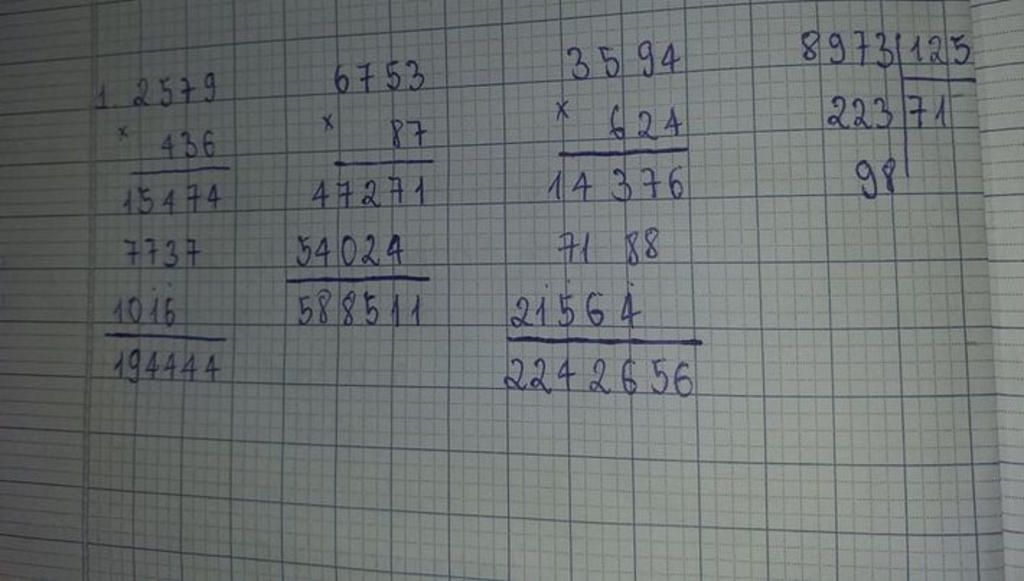 1. 2579
× 436
15474
7737
1016
194444
6753
× 87
47271
54024
588511
3594
× 624
14376
7188
21564
2242656
8973 125
223 71
98